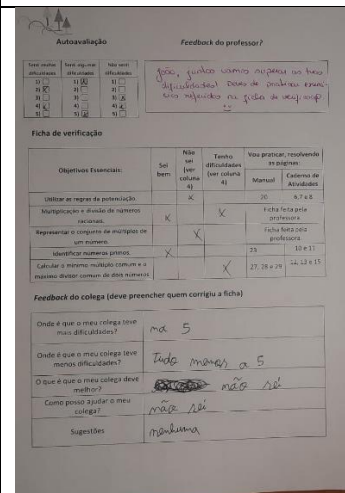 Autoavaliação
Feedback do professor?
Senti muitas dificuldades
Senti algumas dificuldades
Não senti dificuldades
1)
1)
1)
2)
2)
2)
3)
3)
3)
4)
4)
4)
5)
5)
5)
João, juntos vamos superar as tuas
dificuldades! Deves de praticar
referidos na ficha de
Ficha de verificação
Objetivos Essenciais:
Sei bem
Não sei (ver coluna 4)
Tenho dificuldades (ver coluna 4)
Vou praticar, resolvendo as páginas:
Manual
Caderno de Atividades
Utilizar as regras da potenciação. X 20 6,7 e 8
Multiplicação e divisão de números racionais. X X Ficha feita pela professora
Representar o conjunto de múltiplos de um número. X Ficha feita pela professora
Identificar números primos. X 23 10 e 11
Calcular o mínimo múltiplo comum e o máximo divisor comum de dois números X 27, 28 e 29 12, 13 e 15
Feedback do colega (deve preencher quem corrigiu a ficha)
Onde é que o meu colega teve mais dificuldades? na 5
Onde é que o meu colega teve menos dificuldades? tudo menos a 5
O que é que o meu colega deve melhor? não sei
Como posso ajudar o meu colega? não sei
Sugestões nenhuma